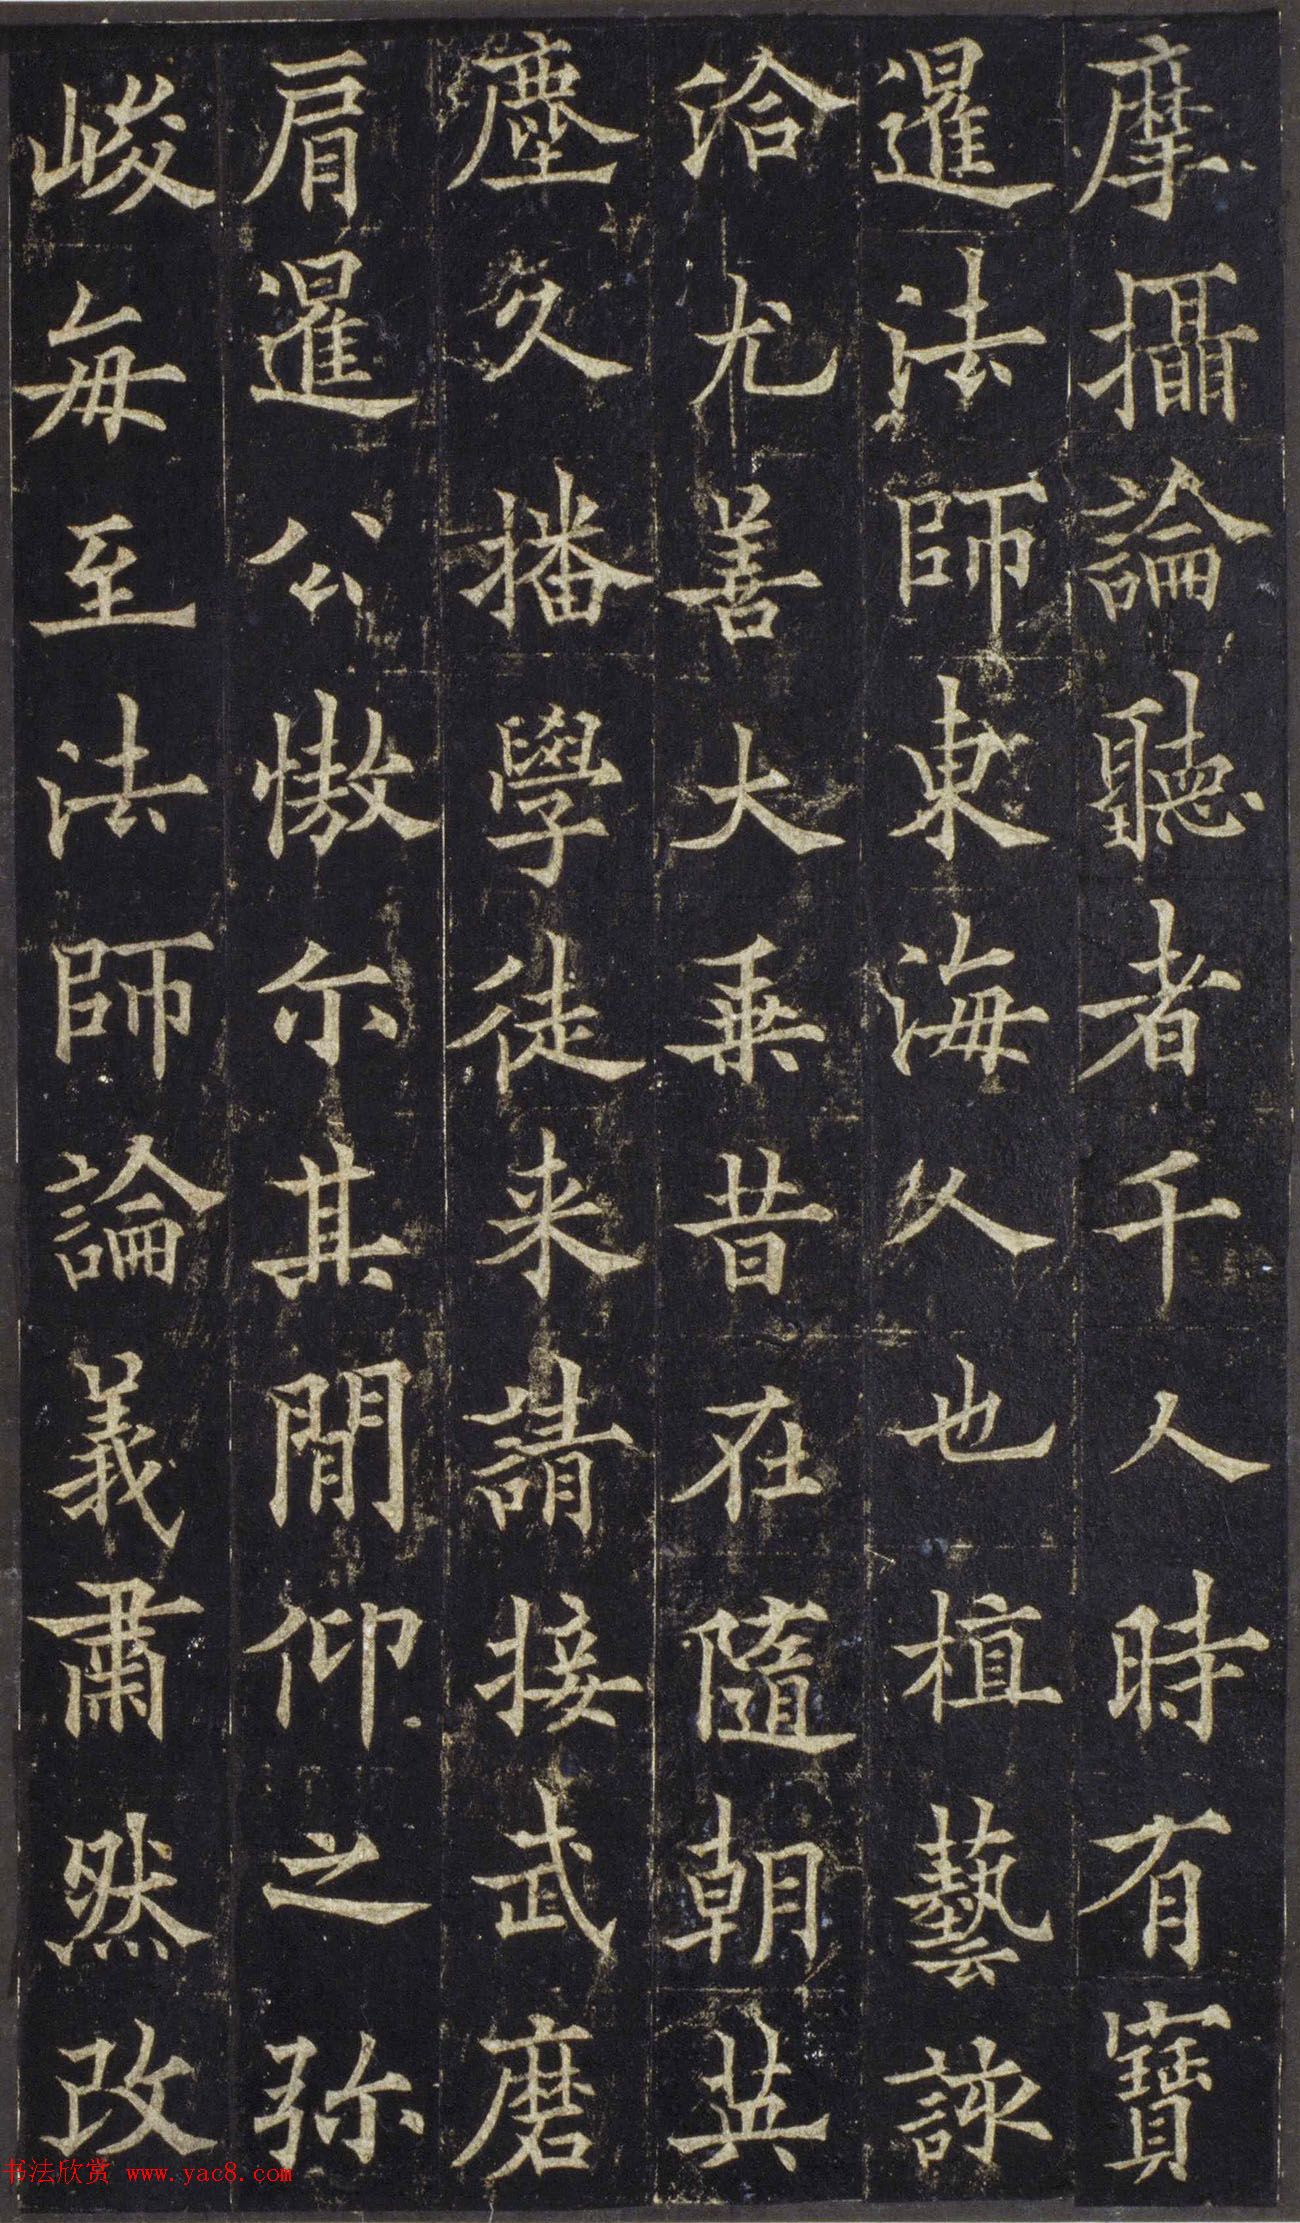 摩攝論聽者千人時有寶
暹法師東海人也植藝該
洽尤善大乗昔在隨朝英
塵久播學徒来請接武磨
肩暹公慠尒其閒仰之弥
峻每至法師論義肅然改
书法欣赏 www.yac8.com